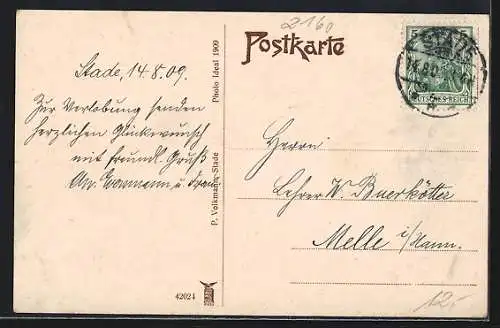 2160
Postkarte
Stade, 14.8.09.
Zur Verlobung senden
herzlichen Glückwunsch
mit freundl. Gruß
u. Frau
Photo Ideal 1909
P. Volkmann, Stade
42024
5
STADE
DEUTSCHES REICH
Herrn
Lehrer W. Buerkötter
Melle i/Hann.
12,-